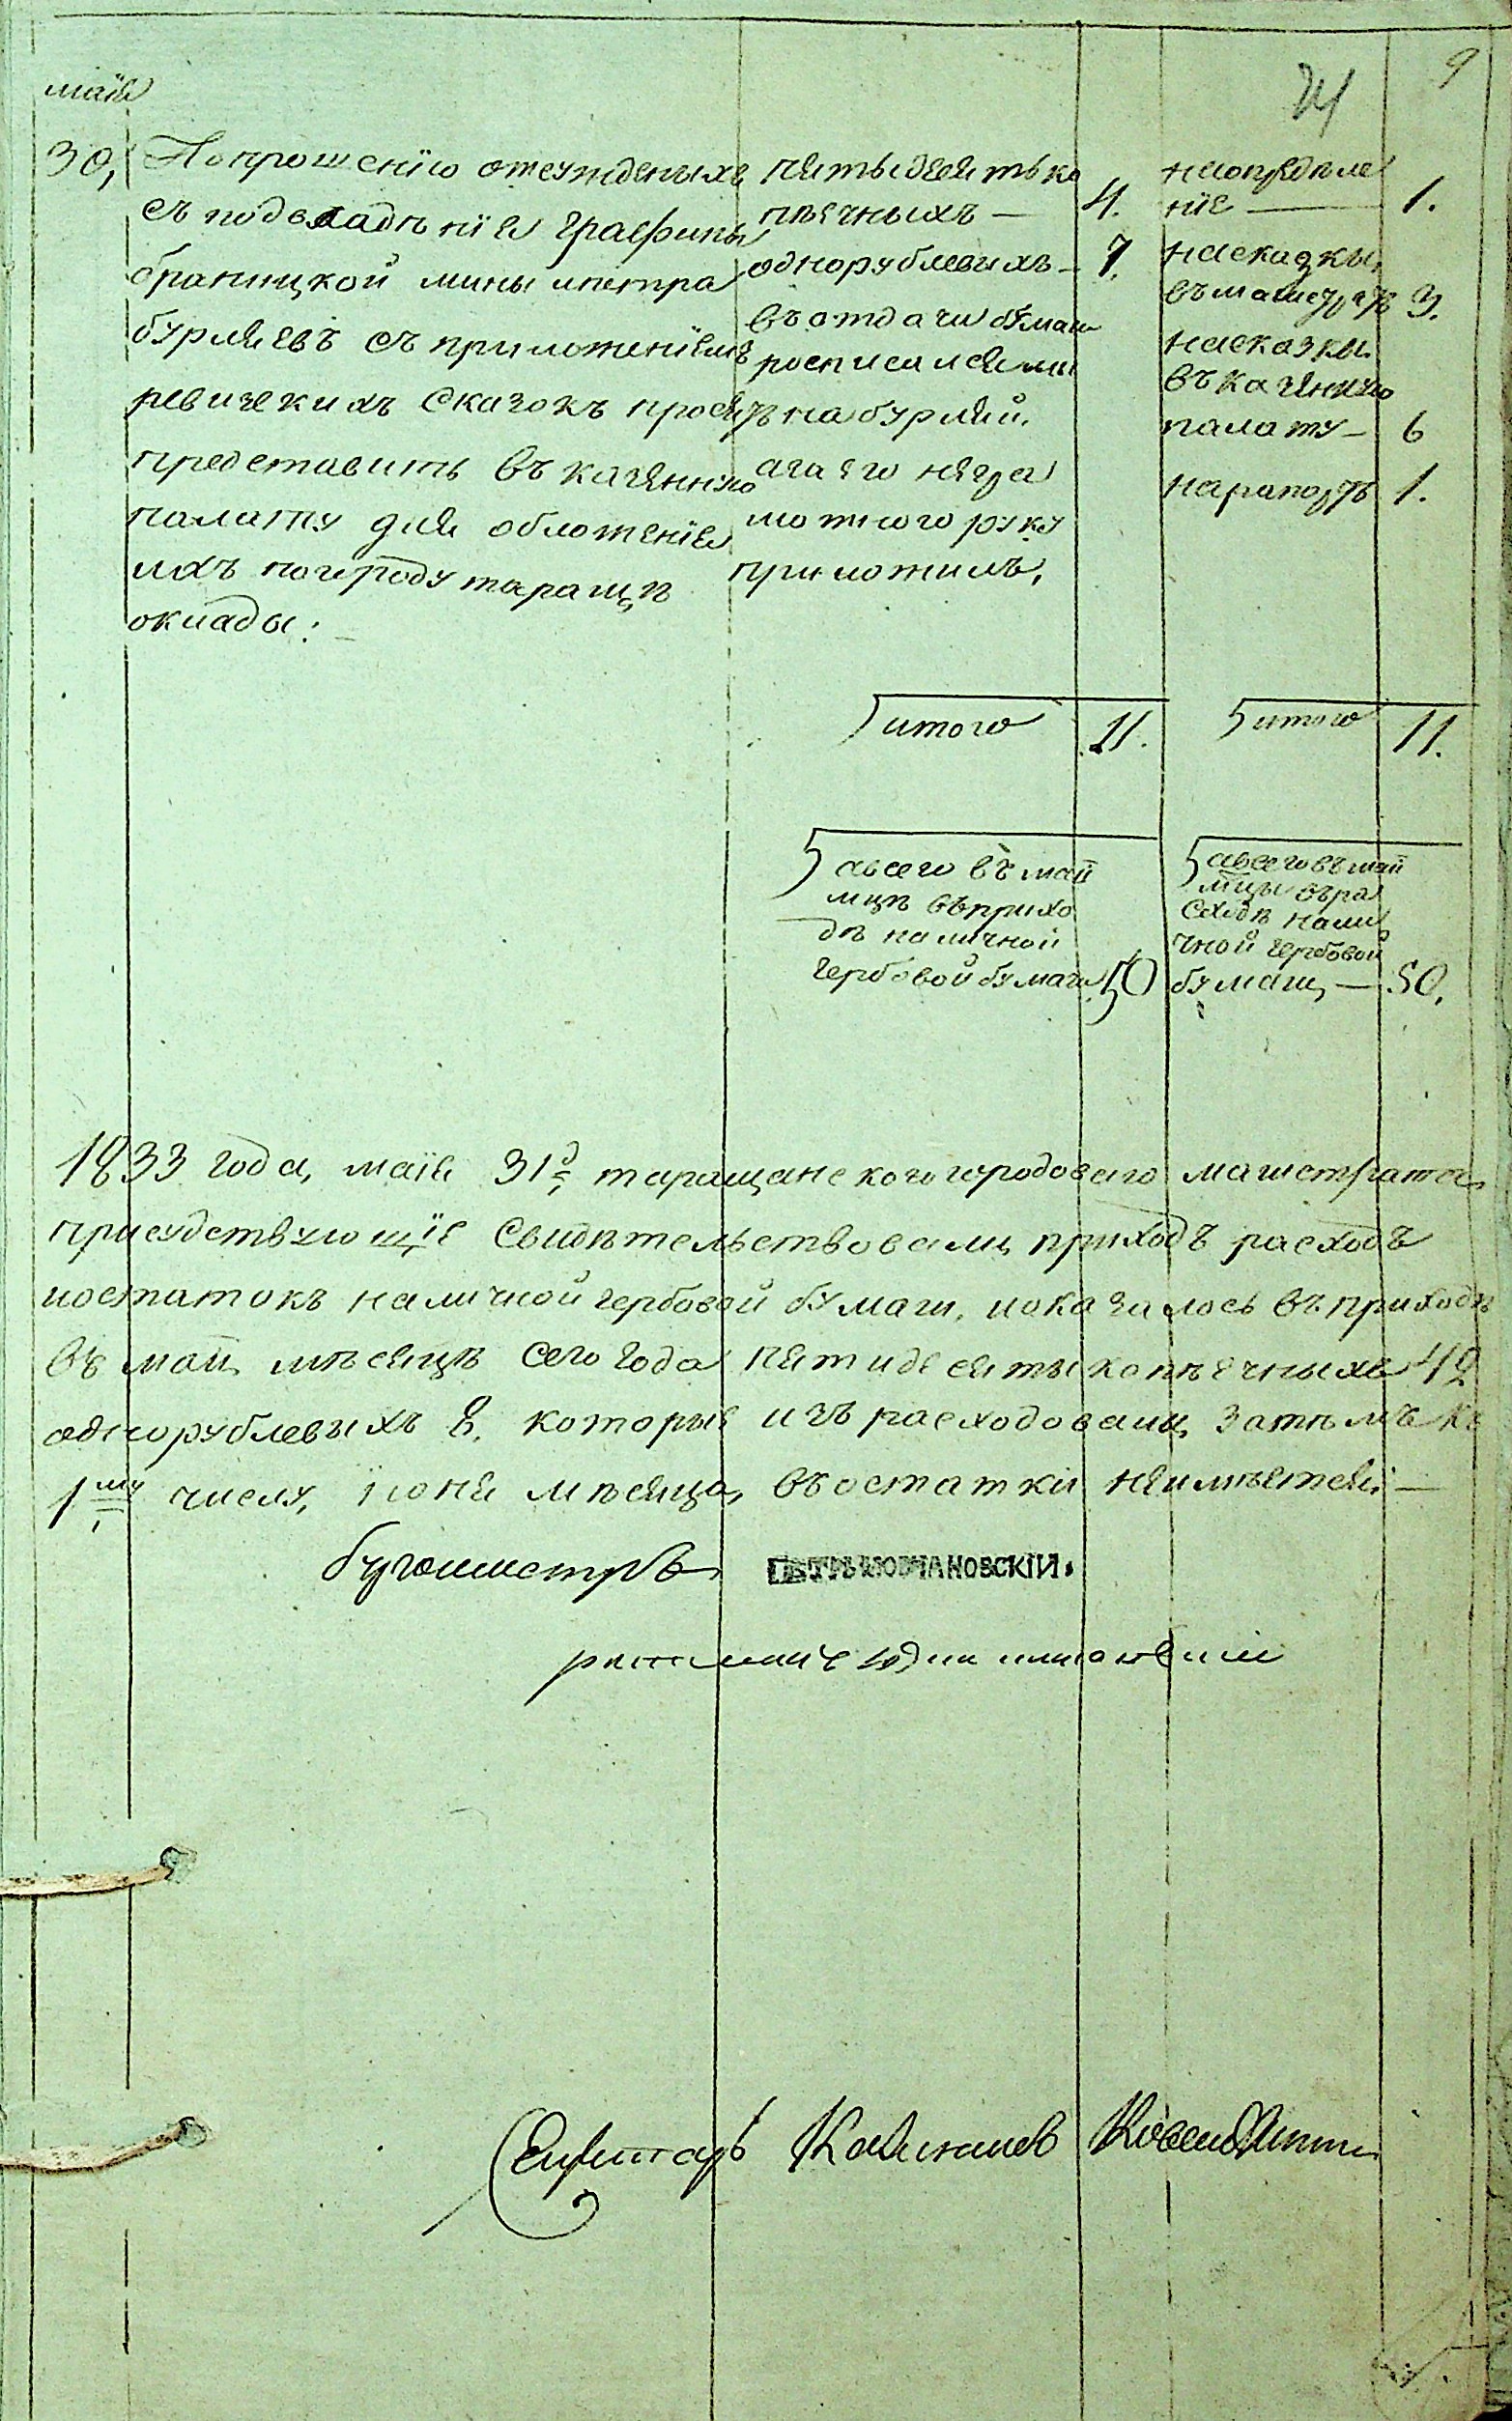 9
маія
30, По прошенїю отсужденыхъ
съ подвладѣнїя Графины
браницкой мины ипетра
бурляевъ съ приложенїемъ
ревизскихъ сказокъ прося
представить въ казенную
палату для обложенїя
ихъ погороду таращѣ
оклады:
пятыдесятько
пѣечныхъ — 4.
однорублевыхъ — 7.
въ отдачи бумаги
росписался мы
на бурляй.
а за его негра
мотного руку
приложилъ,
наопредѣле
нїе — 1.
насказки,
въмагистратъ 3.
насказки
въ казенную
палату — 6
нарапортъ 1.
итого 11.
итого 11.
авсего въ маїи
мцѣ въприхо
дѣ наличной
гербовой бумаги 50
авсего въ маїи
мцы въра
сходѣ нали
чной гербовой
бумаги, — 50.
1833 года, маїя 31д таращанского городоваго магистрата
присудствующїе свидѣтельствовали, приходъ расходъ
иостатокъ наличной гербовой бумаги, иоказалось въ приходѣ
въ маїи мѣсяцѣ сего года пятидесятыкопѣечныхъ 42
однорублевыхъ 8. которые изъ расходовали, затѣмъ къ
1му числу, їюня мѣсяца, въ остатки неимѣется: —
бургомистръ ПЕТРЪ НОВСКІЙ.
Секретарь